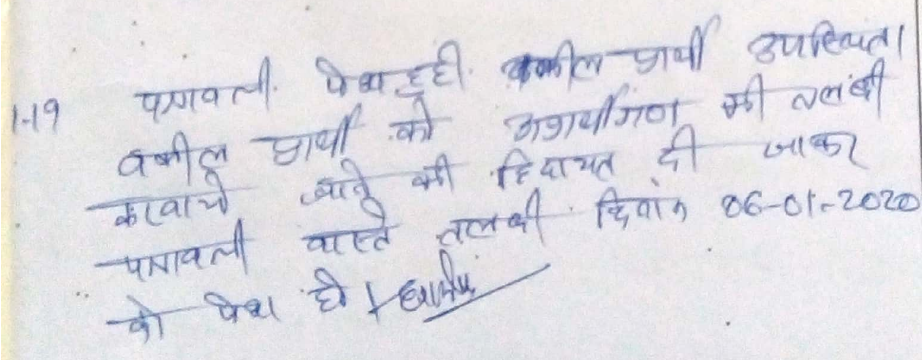 1-19 पत्रावली पेश हुई. वकील प्रार्थी उपस्थित।
वकील प्रार्थी को अप्रार्थीगण की तलबी
करवाये जाने की हिदायत दी जाकर
पत्रावली वास्ते तलबी दिनांक 06-01-2020
को पेश हो।